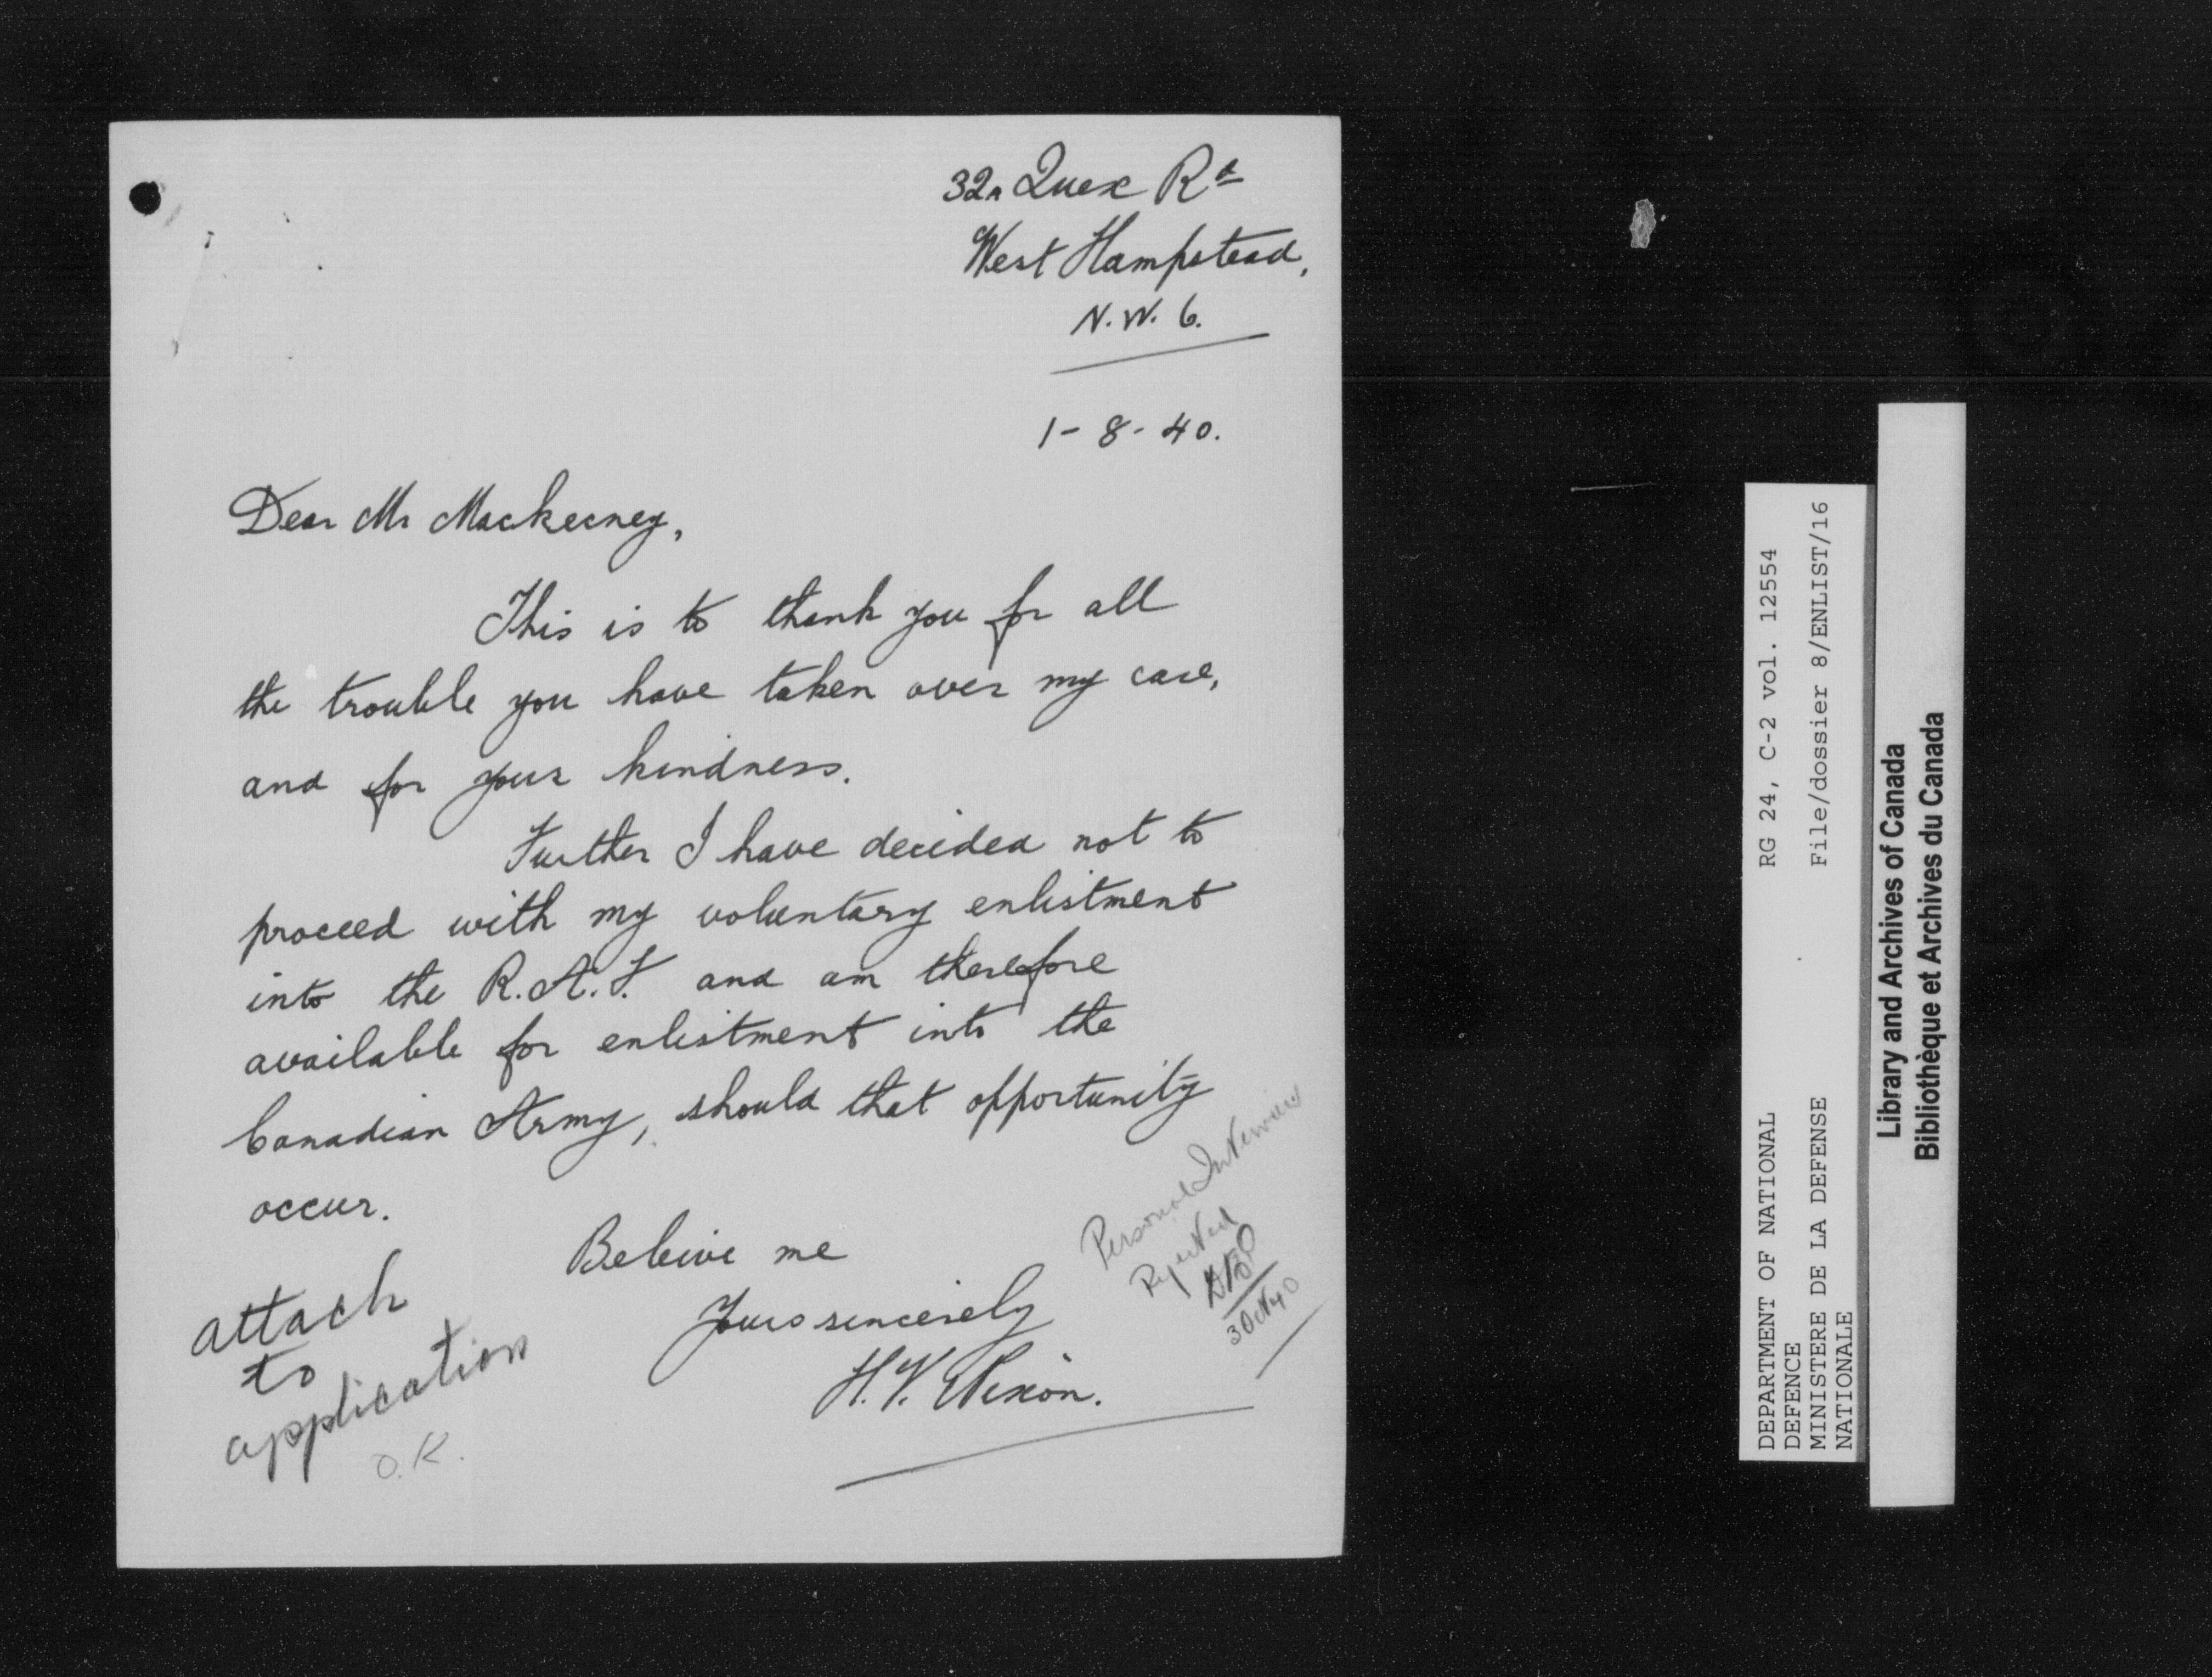 32A Quex Rd
West Hampstead,
N.W. 6.
1-8-40.
Dear Mr Mackeeney,
This is to thank you for all
the trouble you have taken over my case,
and for your kindness.
Further I have decided not to
proceed with my voluntary enlistment
into the R.A.F. and am therefore
available for enlistment into the
Canadian Army, should that opportunity
occur.
Beleive me
Yours sincerely
H.V. Nixon.
attach
to
application
O.K.
Personal Interview
Rejected
3 Oct 40
DEPARTMENT OF NATIONAL
DEFENCE
MINISTERE DE LA DEFENSE
NATIONALE
RG 24, C-2 vol. 12554
File/dossier 8/ENLIST/16
Library and Archives of Canada
Bibliothèque et Archives du Canada